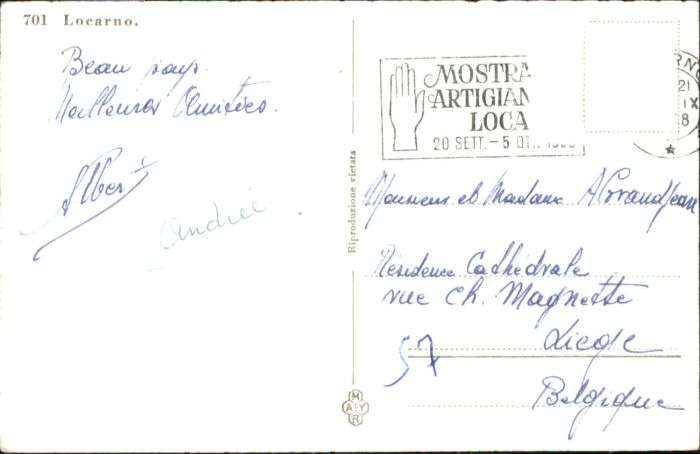 701 Locarno.
Beau pays.
Meilleures Amitiés.
Albert
Andrée
Riproduzione vietata
MOSTRA
ARTIGIAN
LOCA
20 SETT. – 5 OTT.
21
IX
8
Monsieur et Madame A Grandjean
Résidence Cathédrale
rue Ch. Magnette
57
Liège
Belgique